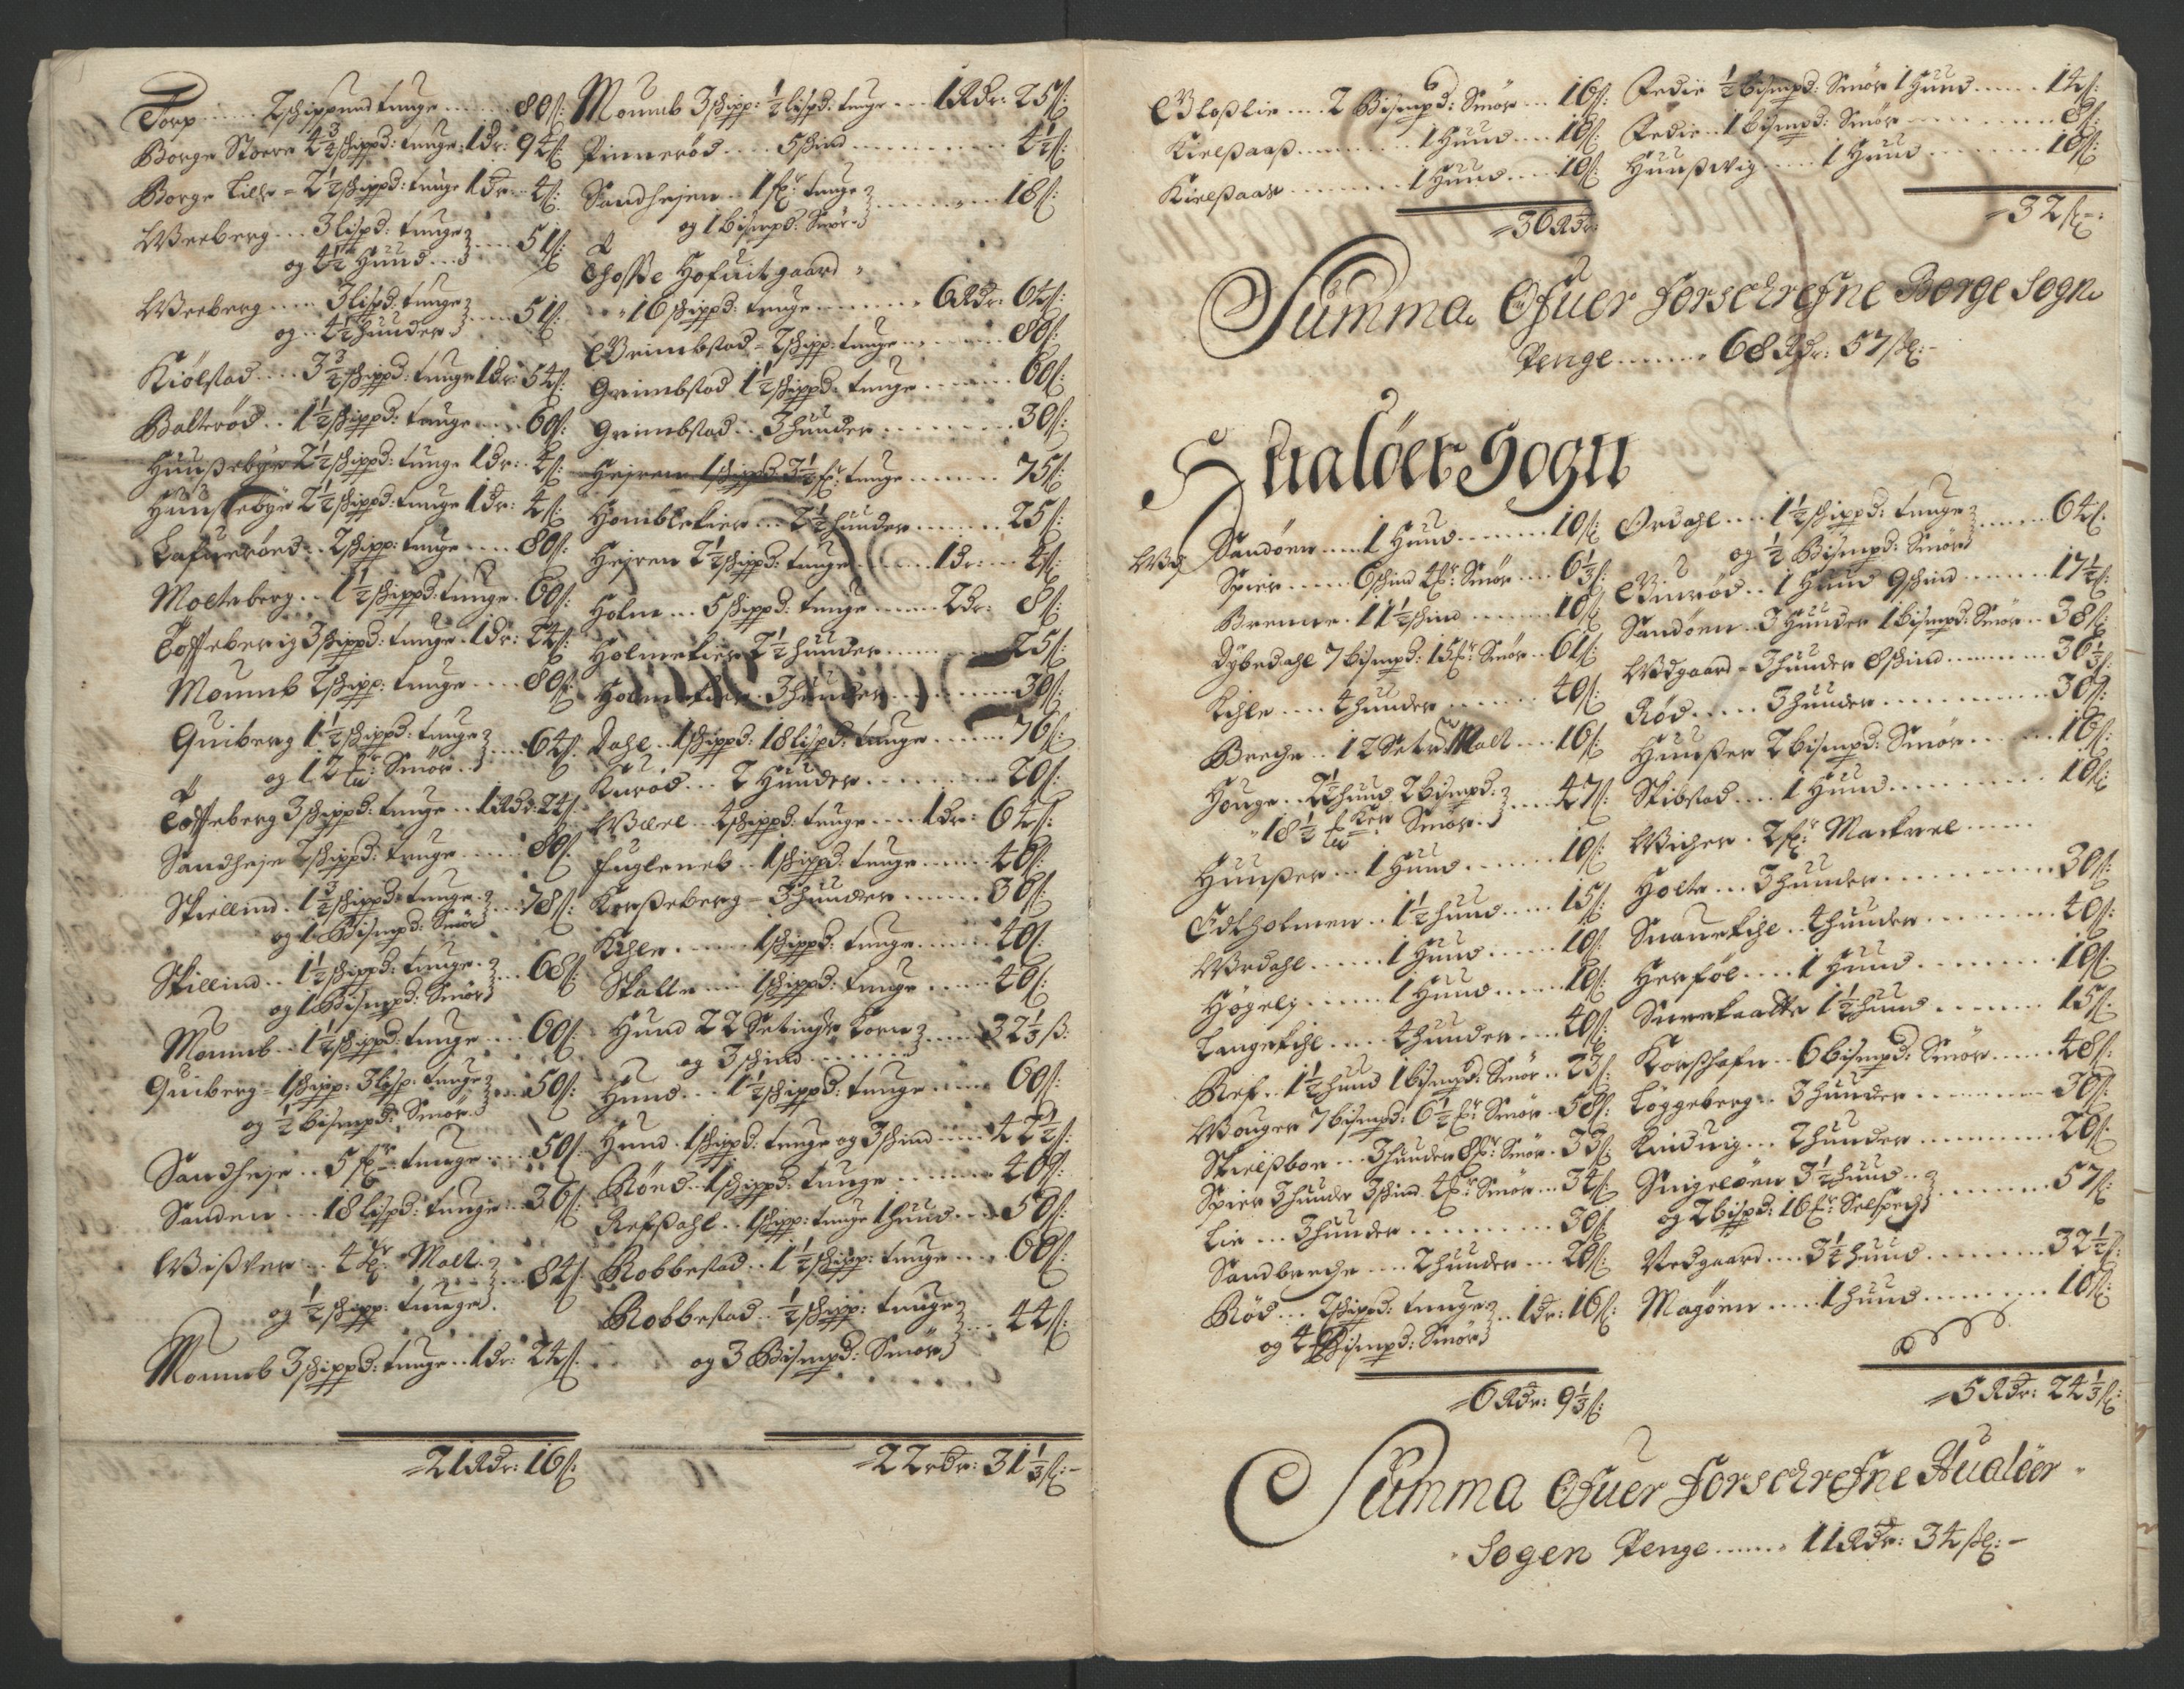 Torp ...... 2 schippund tunge ...... 80 ß:
Borge Stoere 4 3/4 schippd: tunge 1 dr: 94 ß:
Borge Lille = 2 1/2 schippd: tunge 1 dr: 4 ß:
Weeberg ... 3 lispd: tunge
og 4 1/2 Huud ... 51 ß:
Weeberg ... 3 lispd: tunge
og 4 1/2 huuder ... 51 ß:
Kiölstad ... 3 3/4 schippd: tunge 1 dr: 54 ß:
Balterød .. 1 1/2 schippd: tunge ... 60 ß:
Huußebye 2 1/2 schippd: tunge 1 dr: 4 ß:
Huußebye 2 1/2 schippd: tunge 1 dr: 4 ß:
Lafuerönd .. 2 schipp: tunge ... 80 ß:
Molteberg .. 1 1/2 schippd: tunge . 60 ß:
Toffeberig 3 schippd: tunge . 1 dr: 24 ß:
Moumb 2 schipp: tunge ... 80 ß:
Quiberg 1 1/2 schippd: tunge
og 12 Smör .. 64 ß:
Toffeberg 3 schippd: tunge .. 1 Rdr: 24 ß:
Sandheje 2 schippd: tunge ... 80 ß:
Skiellind . 1 3/4 schippd: tunge
og 1 Bismpd: Smör ... 78 ß:
Skillind .. 1 1/2 schippd: tunge
og 1 Bismpd: Smör ... 68 ß:
Moumb .. 1 1/2 schippd: tunge ... 60 ß:
Quiberg = 1 schipp: 3 lisp: tunge
og 1/2 bismpd: Smör ... 50 ß:
Sandheje .. 5 fr tunge ... 50 ß:
Sanden ... 18 lispd: tunge .. 36 ß:
Wißter .. 4 Malt
og 1/2 schipp: tunge ... 84 ß:
Moumb 3 schippd: tunge .. 1 dr: 24 ß:
= 21 Rdr: 16 ß:
Moumb 3 schipp: 1/2 lispd: tunge ... 1 Rdr: 25 ß:
Pinnerød ... 5 skind ... 4 1/2 ß:
Sandhejen .. 1 fr tunge
og 1 bismpd: Smör ... 18 ß:
Thosse Hofuitgaard
16 schippd: tunge ... 6 Rdr: 64 ß:
Grimbstad = 2 schipp: tunge ... 80 ß:
Grimbstad 1 1/2 schippd: tunge ... 60 ß:
Grimbstad .. 3 huuder ... 30 ß:
Hejren 1 schippd 3 1/2 fr tunge ... 75 ß:
Homblekier ... 2 1/2 huuder ... 25 ß:
Hejren 2 1/2 schippd: tunge ... 1 dr: 4 ß:
Holm ... 5 schippd: tunge ... 2 dr: 8 ß:
Holmekier 2 1/2 huuder ... 25 ß:
Holmekier 3 huuder ... 30 ß:
Dahl .. 1 schippd: 18 lispd: tunge ... 76 ß:
Kurød ... 2 Huuder ... 20 ß:
Wæel .. 4 schippd: tunge ... 1 dr: 64 ß:
Fugleneb .. 1 schippd: tunge ... 40 ß:
Korßeberg = 3 huuder ... 30 ß:
Kihle ... 1 schippd: tunge ... 40 ß:
Skalle ... 1 schippd: tunge ... 40 ß:
Hund 22 Setinger Korn
og 3 skind ... 32 1/3 ß:
Hund ... 1 1/2 schippd: tunge ... 60 ß:
Hund . 1 schippd: tunge og 3 skind ... 42 1/2 ß:
Rönd .. 1 schippd: tunge ... 40 ß:
Refßahl .. 1 schipp: tunge 1 huud ... 50 ß:
Robbestad .. 1 1/2 schipp: tunge ... 60 ß:
Robbestad .. 1/2 schipp: tunge
og 3 Bismpd: Smör ... 44 ß:
= 22 rdr: 31 1/3 ß: –
Bloßlie ... 2 Bismpd: Smör ... 16 ß:
Kielßaaß ... 1 Huud ... 10 ß:
Kielßaas ... 1 Huud ... 10 ß:
= 36 Rdr:
Fedie 1/2 bismpd: Smör 1 Huud ... 14 ß:
Fedie .. 1 bismpd: Smör ... 8 ß:
Huußwig ... 1 Huud ... 10 ß:
= 32 ß = :
Summa Ofuer forschrefne Borge Sogn
Penge ... 68 Rdr: 57 ßl: –
Hualöer Sogn
Sandöen ... 1 Huud ... 10 ß:
Spier ... 6 skind 4 fr: Smör ... 6 1/3 ß:
Brenne . 11 1/2 skind ... 10 ß:
Dybedahl 7 bismpd: 15 fr Smör .. 61 ß:
Kihle ... 4 huuder ... 40 ß:
Breche .. 12 Setr: Malt ... 16 ß:
Houge .. 2 1/2 huud 2 bismpd:
18 1/2 Smör ... 47 ß:
Huußer ... 1 Huud ... 10 ß:
Edtholmen .. 1 1/2 huud ... 15 ß:
Wrdahl ... 1 Huud ... 10 ß:
Högely ... 1 Huud ... 10 ß:
Langekihl ... 4 huuder ... 40 ß:
Ref .. 1 1/2 huud 1 bismpd: Smör .. 23 ß:
Wouger 7 bismpd: 6 1/2 fr Smör . 58 ß:
Skielßboe ... 3 huuder 8 fr: Smör . 33 ß:
Spier 3 huuder 3 skind 4 fr Smör ... 34 ß:
Lie ... 3 huuder ... 30 ß:
Sandbreche ... 2 huuder ... 20 ß:
Rød ... 2 schippd: tunge
og 4 Bismpd: Smör .. 1 dr: 16 ß:
= 6 Rdr: 9 1/3 ß:
Ordahl ... 1 1/2 schippd: tunge
og 1/2 Bismpd: Smör ... 64 ß:
Burød .. 1 Huud 9 skind ... 17 1/2 ß:
Sandöen . 3 Huuder 1 bismpd: Smör .. 38 ß:
Wdgaard = 3 huuder 8 skind ... 36 1/3 ß:
Rød ... 3 huuder ... 30 ß:
Huußer 2 bismpd: Smör ... 16 ß:
Skibstad ... 1 Huud ... 10 ß:
Wiker . 2 fr: Mackrel ...
Holte ... 3 huuder ... 30 ß:
Snauekihl .. 4 huuder ... 40 ß:
Herföl ... 1 Huud ... 10 ß:
Snerekaatte 1 1/2 huud ... 15 ß:
Korßhafn .. 6 bismpd: Smör ... 48 ß:
Löggeberg .. 3 huuder ... 30 ß:
Kiduig ... 2 huuder ... 20 ß:
Singelöen 3 1/2 huud ..
og 2 bispd: 16 fr Selspech ... 57 ß:
Nedgaard ... 3 1/4 huud ... 32 1/2 ß:
Magöen ... 1 huud ... 10 ß:
= 5 Rdr: 24 1/3 ß:
Summa Ofuer forschrefne Hualöer
Sogen Penge ... 11 Rdr: 34 ßl: –